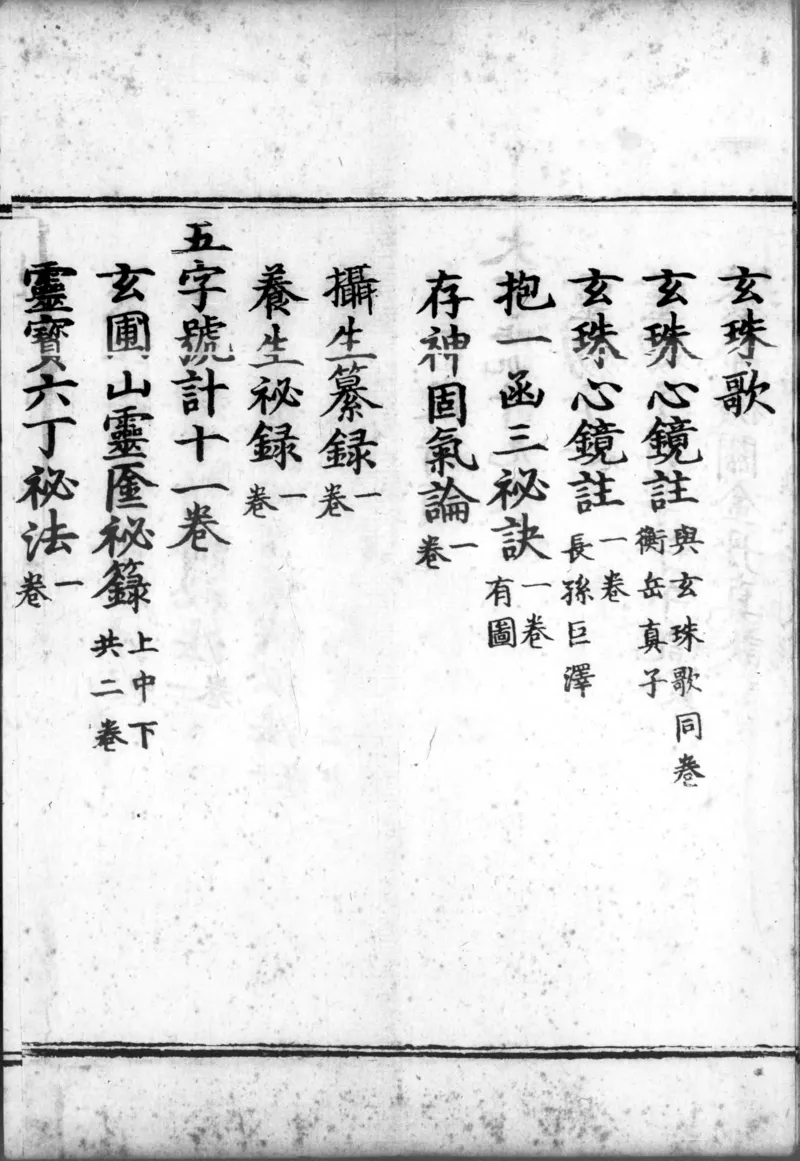 玄珠歌
玄珠心鏡註 與玄珠歌同卷 衡岳真子
玄珠心鏡註 一卷 長孫巨澤
抱一函三祕訣 一卷 有圖
存神固氣論 一卷
攝生纂録 一卷
養生祕録 一卷
五字號計十一卷
玄圃山靈匧祕籙 上中下 共二卷
靈寶六丁祕法 一卷